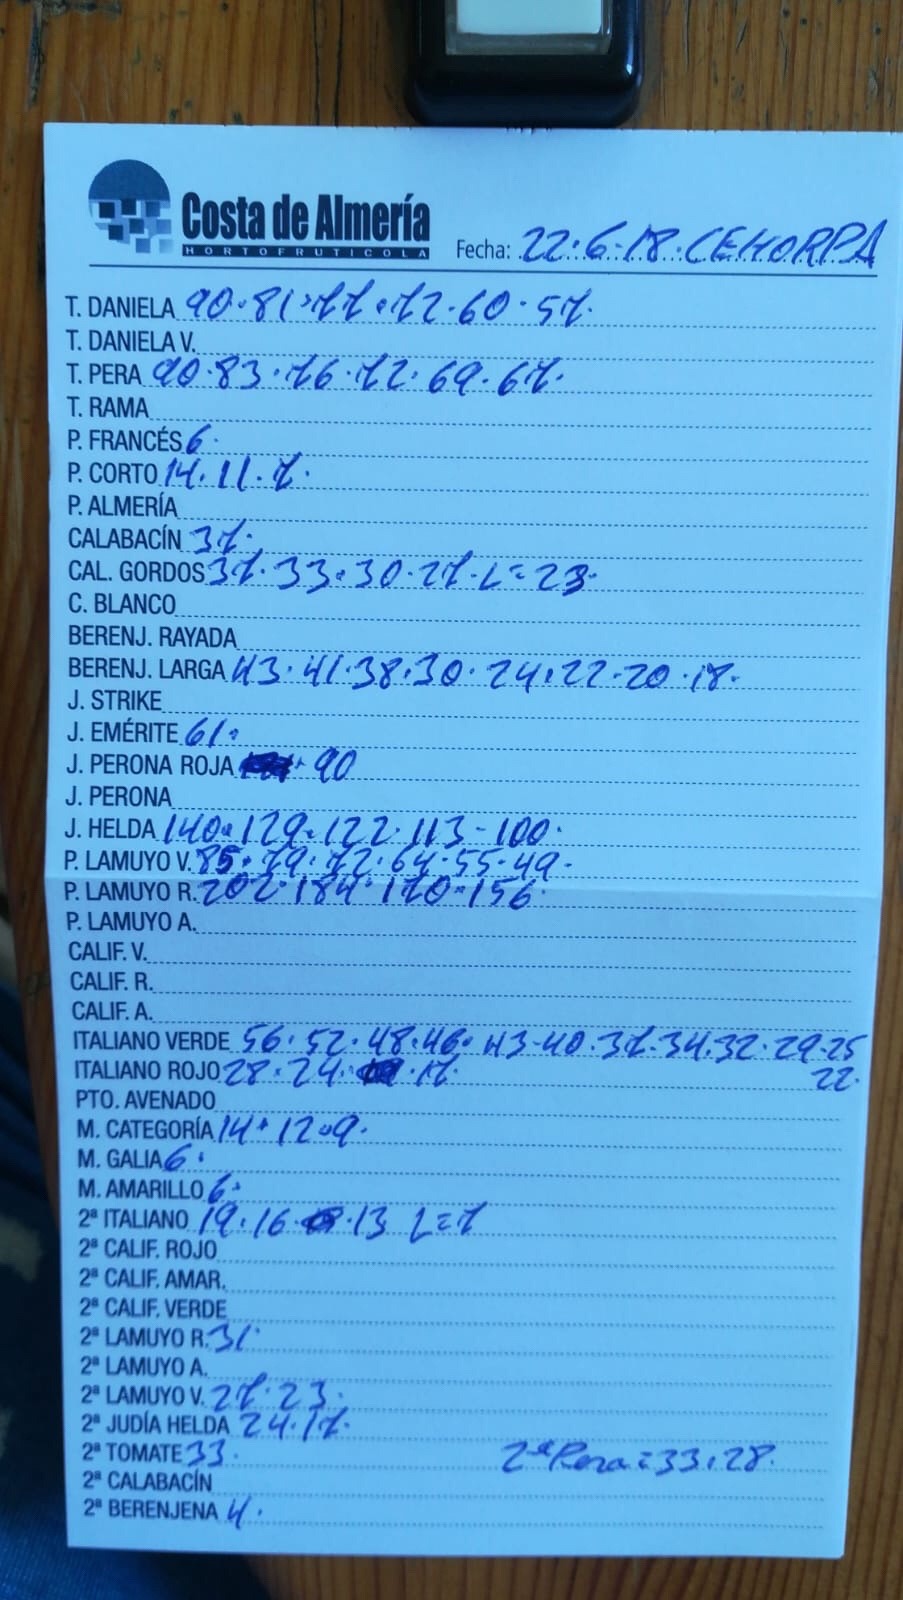 Costa de Almería
HORTOFRUTICOLA
Fecha: 22.6.18. CEHORPA
T. DANIELA 90.81.77.72.60.57.
T. DANIELA V.
T. PERA 90.83.76.72.69.67.
T. RAMA
P. FRANCÉS 6.
P. CORTO 14.11.7.
P. ALMERÍA
CALABACÍN 37.
CAL. GORDOS 37.33.30.27. L=23.
C. BLANCO
BERENJ. RAYADA
BERENJ. LARGA 43.41.38.30.24.22.20.18.
J. STRIKE
J. EMÉRITE 61.
J. PERONA ROJA 90
J. PERONA
J. HELDA 140.129.122.113-100.
P. LAMUYO V. 85.79.72.64.55.49.
P. LAMUYO R. 202.184.170.156.
P. LAMUYO A.
CALIF. V.
CALIF. R.
CALIF. A.
ITALIANO VERDE 56.52.48.46.43-40.37.34.32.29.25
22.
ITALIANO ROJO 28.24. .17.
PTO. AVENADO
M. CATEGORÍA 14.12.9.
M. GALIA 6.
M. AMARILLO 6.
2ª ITALIANO 19.16. .13 L=7
2ª CALIF. ROJO
2ª CALIF. AMAR.
2ª CALIF. VERDE
2ª LAMUYO R. 31.
2ª LAMUYO A.
2ª LAMUYO V. 27.23.
2ª JUDÍA HELDA 24.17.
2ª TOMATE 33. 2ª Pera=33.28.
2ª CALABACÍN
2ª BERENJENA 4.